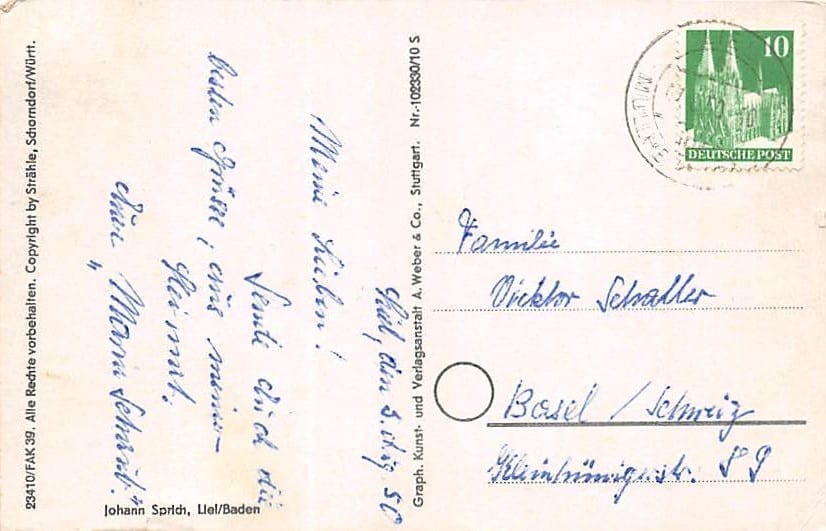 Liel, den 3. Aug 50
Meine Lieben!
Sende Euch die
besten Grüsse, aus meiner
Heimat.
Eure "Mama Schaub."
Johann Sprich, Liel/Baden
23410/FAK 39. Alle Rechte vorbehalten. Copyright by Strähle, Schorndorf/Württ.
Graph. Kunst- und Verlagsanstalt A. Weber & Co., Stuttgart. Nr.-102330/10 S
10
DEUTSCHE POST
Familie
Vicktor Schaller
Basel / Schweiz
Kleinhünigerstr. 89